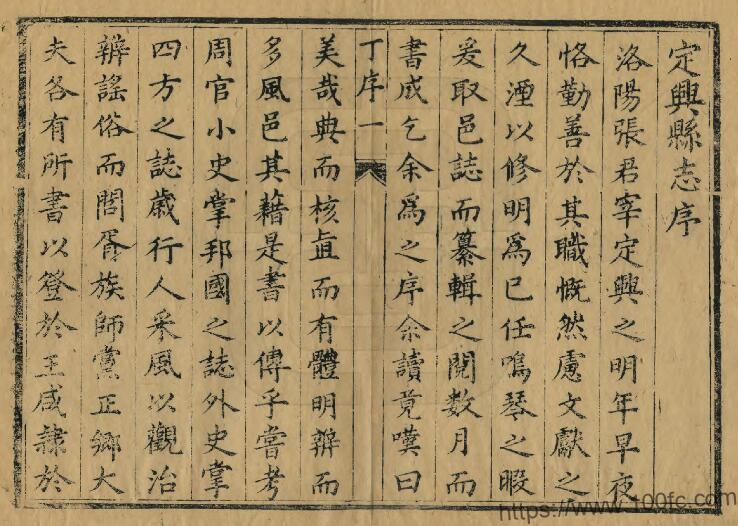 定興縣志序
洛陽張君宰定興之明年早夜
恪勤善於其職慨然慮文獻之
久湮以修明為已任鳴琴之暇
爰取邑誌而纂輯之閱数月而
書成乞余為之序余讀竟嘆曰
丁序一
美哉典而核直而有體明辨而
多風邑其藉是書以傳乎嘗考
周官小史掌邦國之誌外史掌
四方之誌歲行人采風以觀治
辨謡俗而閭胥族師黨正鄉大
夫各有所書以登於王咸隸於
https://www.100fc.com